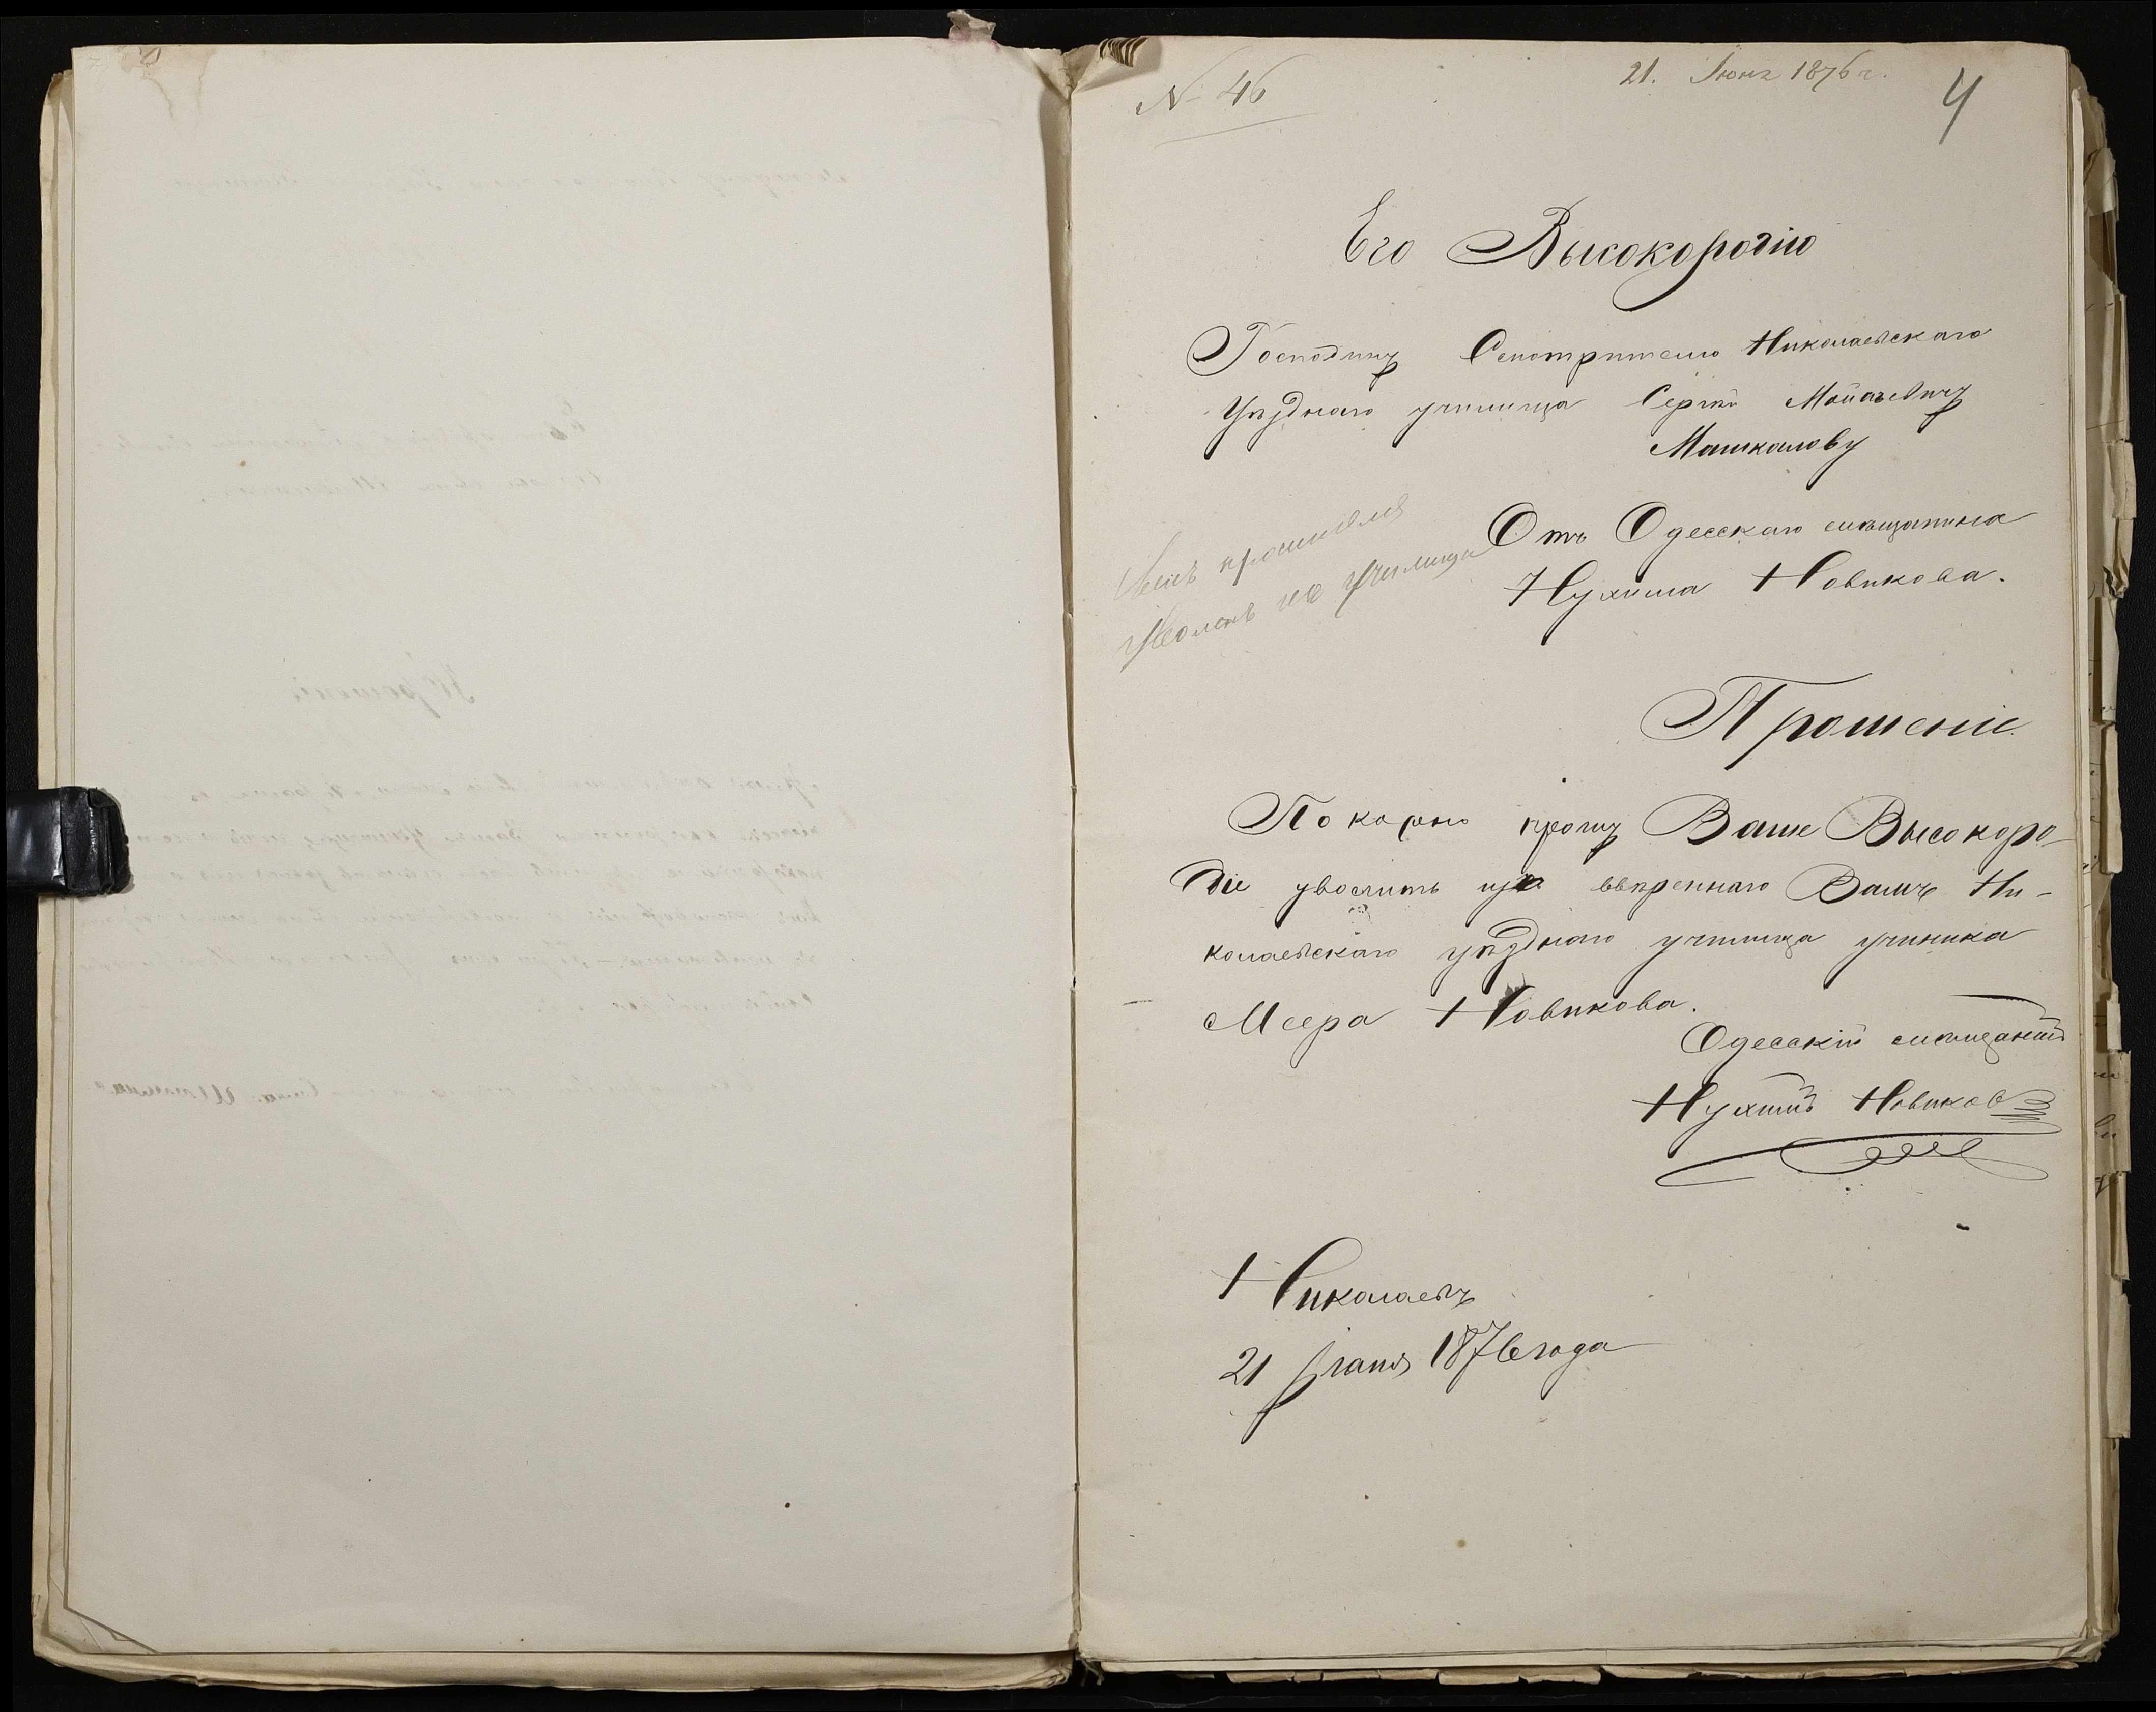 № 46
21. Июня 1876 г.
4
Его Высокородію
Господину Смотрителю Николаевскаго
Уѣзднаго училища Сергѣю
Машкалову
Отъ Одесскаго мѣщанина
Нухима Новикова.
уволенъ изъ училища
Прошеніе.
Покорно прошу Ваше Высокоро-
діе уволить изъ ввѣреннаго Вамъ Ни-
колаевскаго уѣзднаго училища ученика
Меера Новикова.
Одесскій мѣщанинъ
Нухимъ Новиковъ
Николаевъ
21 Іюня 1876 года